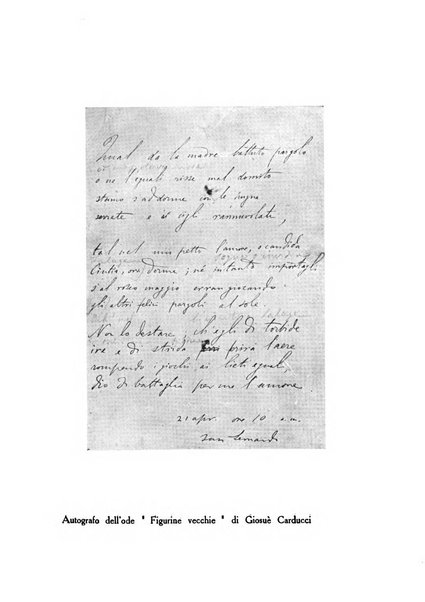 Qual da la madre battuto pargolo
o ne l'eguali risse mal domito
stanco s'addorme con le pugna
serrate e i cigli rannuvolate,
tal nel mio petto l'amore, o candida
Cintia, ora dorme; né intanto importagli
s'al roseo maggio erran giocando
gli altri felici pargoli al sole
Non lo destare, ch'egli di torbide
ire e di strida l'aere
rompendo i giochi ai lieti eguali
dio di battaglia per me l'amore
21 apr. ore 10 a.m.
Autografo dell'ode " Figurine vecchie " di Giosuè Carducci